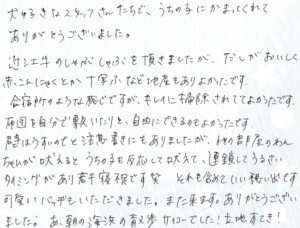 犬好きなスタッフさんたちで、うちの子にかまってくれて
ありがとうございました。
近江牛のしゃぶしゃぶを頂きましたが、だしがおいしく
赤こんにゃくとか丁字ふなど地産もありよかったです。
合宿所のような感じですが、キレイに掃除されててよかったです。
布団を自分で敷いたりと、自由にできるのもよかったです
壁はうすいのでと注意書きにもありましたが、他の部屋のわん
ちゃんが吠えると うちの子も反応して吠えて、連鎖してうるさい
タイミングがあり若干寝不足です笑 それも含めていい思い出です
可愛いバッヂもいただきました。また来ます。ありがとうござい
ました。あ、朝の海浜の散歩サイコーでした!立地すてき!